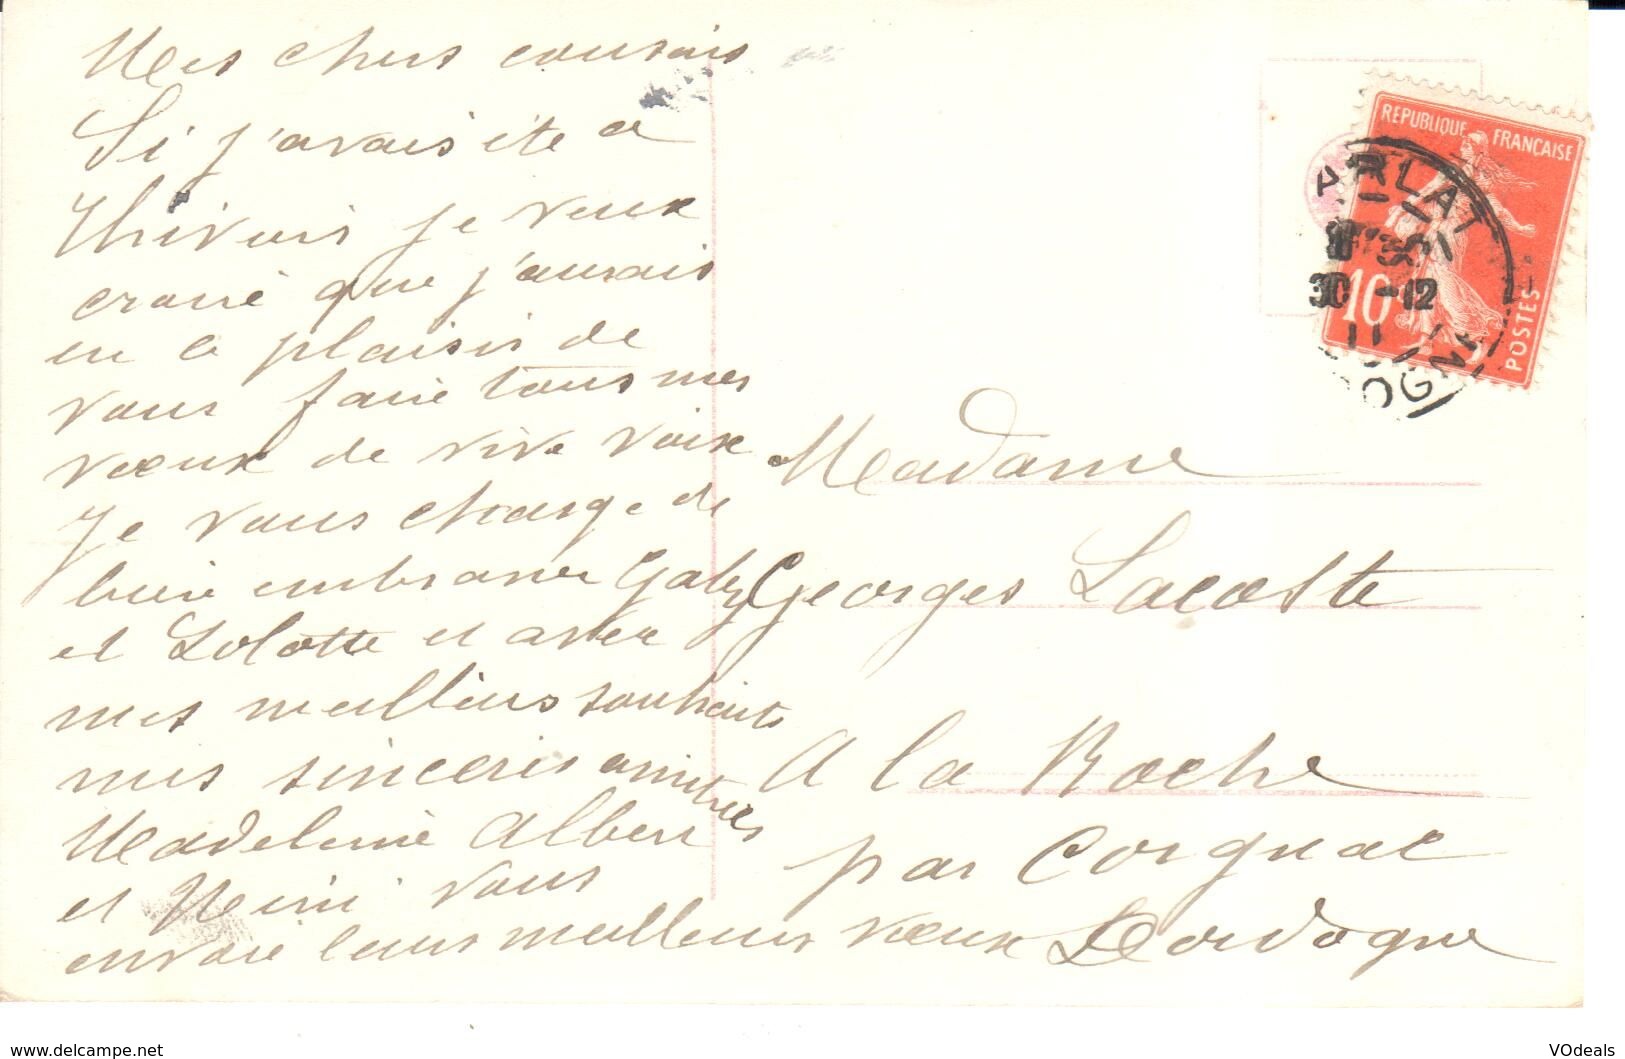 Mes chers cousins
Si j'avais été a
Thiviers je veux
croire que j'aurais
eu le plaisir de
vous faire tous mes
voeux de vive voix
Je vous charge de
bien embrasser Gaby
et Lolotte et avec
mes meilleurs souhaits
mes sinceres amitiees
Madeleine Albert
et Nini vous
envoie leurs meilleurs voeux
REPUBLIQUE FRANÇAISE
10
POSTES
ARLAT
30 -12
11
DOGN
Madame
Georges Lacoste
A la Roche
par Corgnac
Dordogne
www.delcampe.net
VOdeals